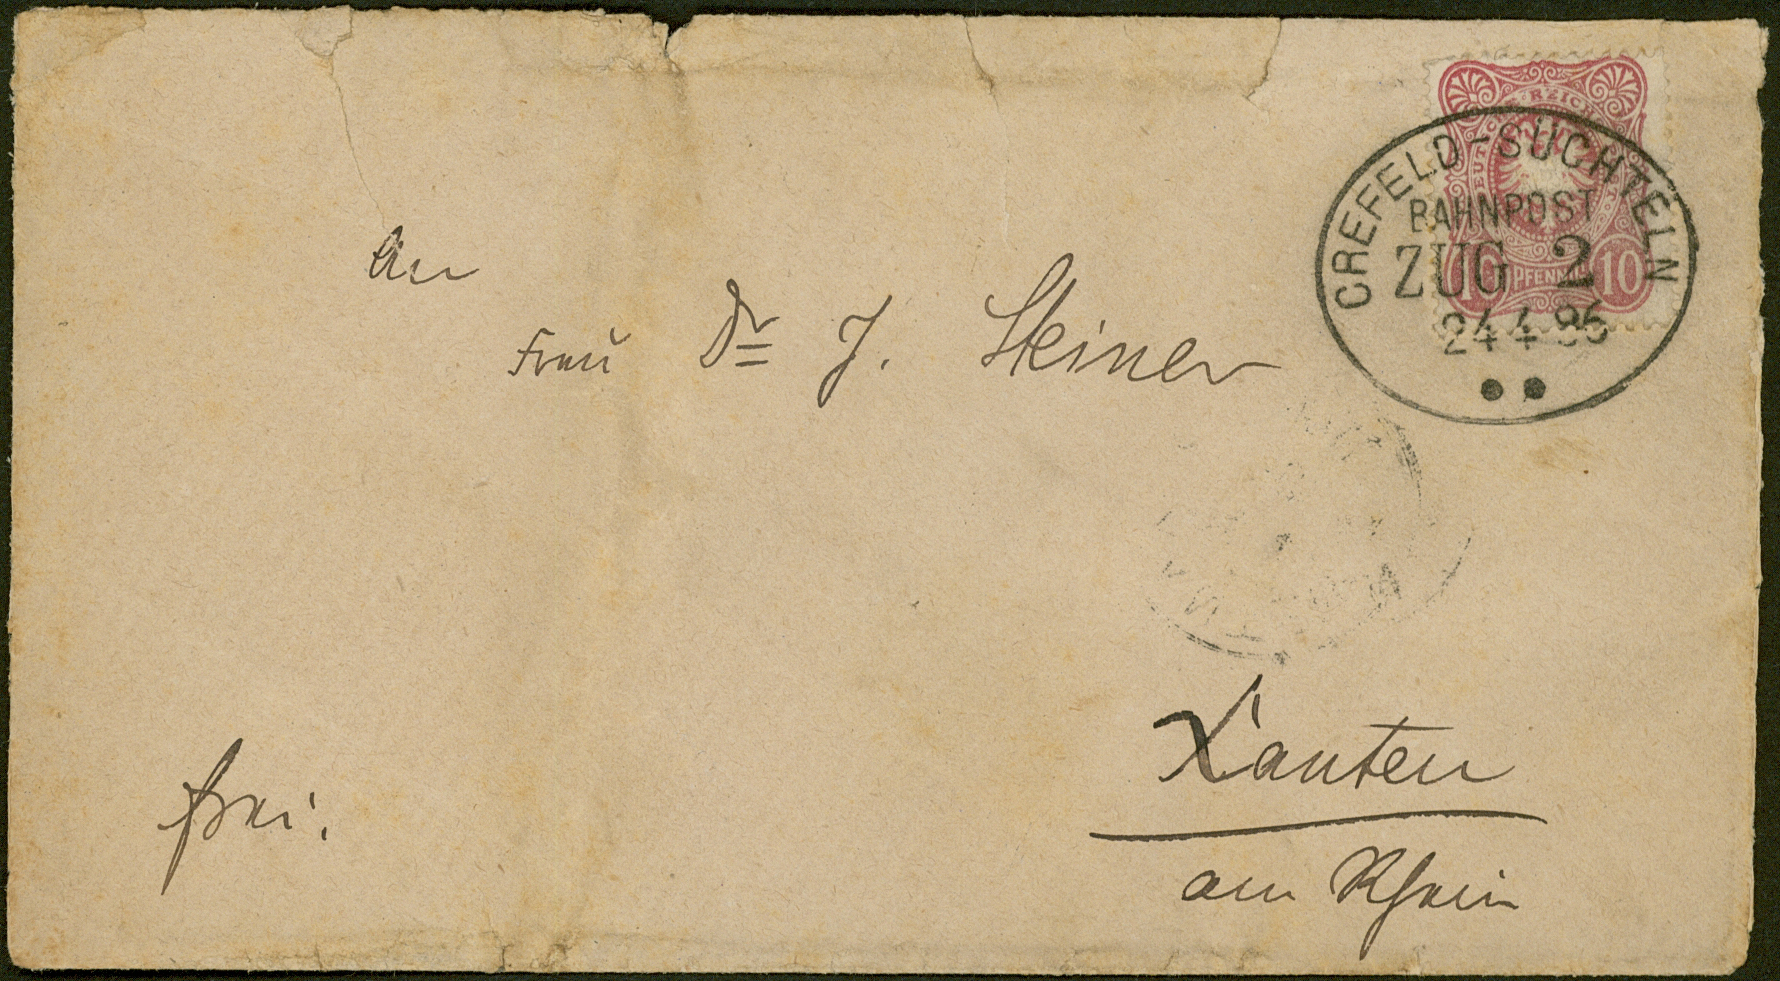 CREFELD-SÜCHTELN
BAHNPOST
ZUG 2
24 4 86
REICH
10 PFENNIG 10
An
Frau Dr J. Steiner
Xanten
am Rhein
frei.